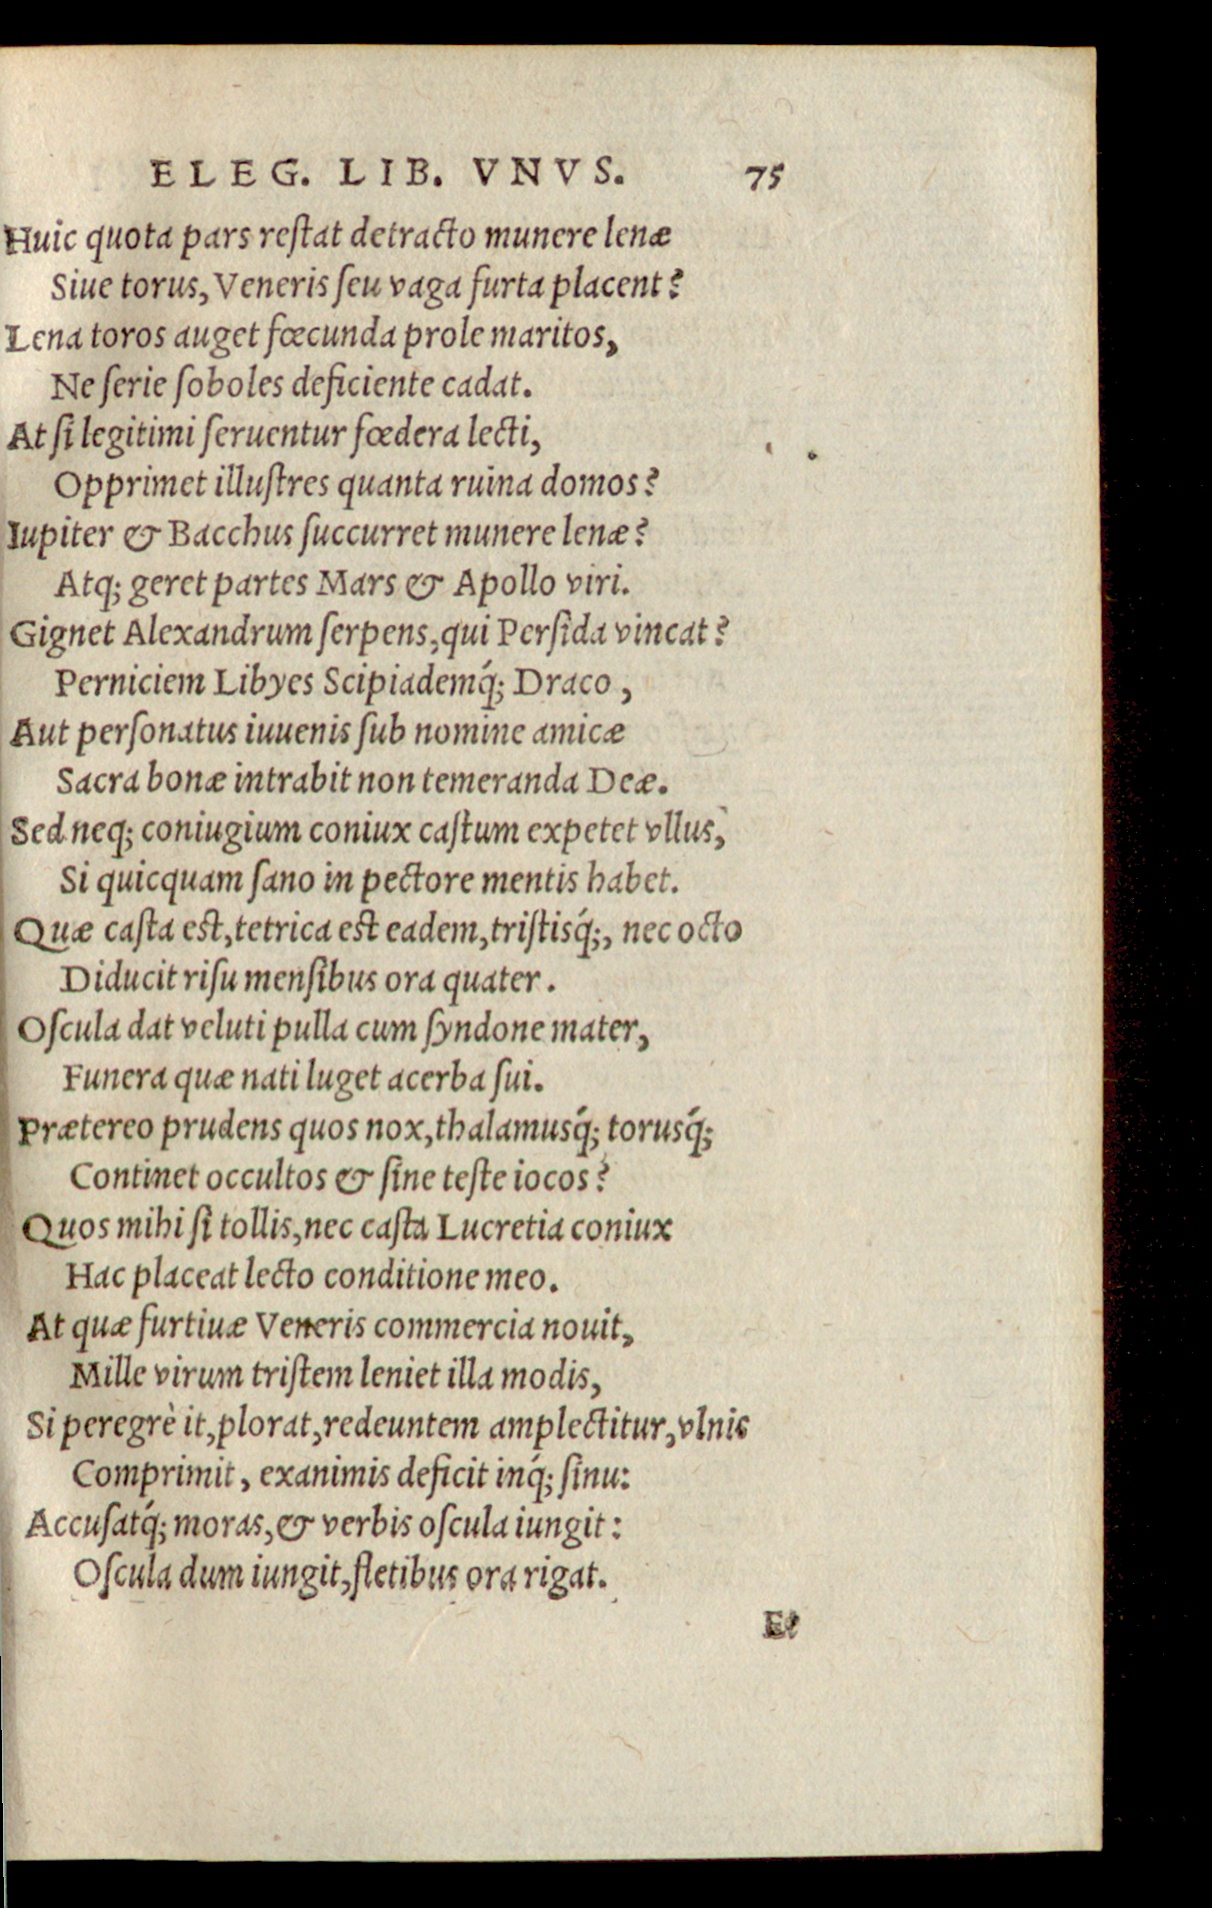 ELEG. LIB. VNVS. 75
Huic quota pars reſtat detracto munere lenæ
Siue torus, Veneris ſeu vaga furta placent?
Lena toros auget fœcunda prole maritos,
Ne ſerie ſoboles deficiente cadat.
At ſi legitimi ſeruentur fœdera lecti,
Opprimet illuſtres quanta ruina domos?
Iupiter & Bacchus ſuccurret munere lenæ?
Atq; geret partes Mars & Apollo viri.
Gignet Alexandrum ſerpens, qui Perſida vincat?
Perniciem Libyes Scipiademq́; Draco,
Aut perſonatus iuuenis ſub nomine amicæ
Sacra bonæ intrabit non temeranda Deæ.
Sed neq; coniugium coniux caſtum expetet vllus,
Si quicquam ſano in pectore mentis habet.
Quæ caſta eſt, tetrica eſt eadem, triſtisq́;, nec octo
Diducit riſu menſibus ora quater.
Oſcula dat veluti pulla cum ſyndone mater,
Funera quæ nati luget acerba ſui.
Prætereo prudens quos nox, thalamusq́; torusq́;
Continet occultos & ſine teſte iocos?
Quos mihi ſi tollis, nec caſta Lucretia coniux
Hac placeat lecto conditione meo.
At quæ furtiuæ Veneris commercia nouit,
Mille virum triſtem leniet illa modis,
Si peregrè it, plorat, redeuntem amplectitur, vlnis
Comprimit, exanimis deficit inq́; ſinu:
Accuſatq́; moras, & verbis oſcula iungit:
Oſcula dum iungit, fletibus ora rigat.
Et